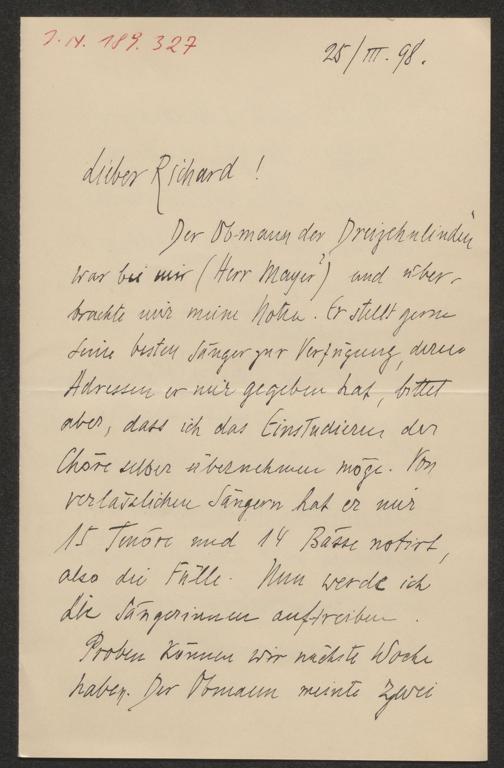 I.N. 189.327
25/III. 98.
Lieber Richard!
Der Obmann der „Dreizehnlinden“
war bei mir (Herr Mayer?) und über-
brachte mir meine Noten. Er stellt gerne
seine besten Sänger zur Verfügung, deren
Adressen er mir gegeben hat, bittet
aber, dass ich das Einstudieren der
Chöre selber übernehmen möge. Von
verlässlichen Sängern hat er mir
15 Tenöre und 14 Bässe notirt,
also die Fülle. Nun werde ich
die Sängerinnen auftreiben.
Proben können wir nächste Woche
haben. Der Obmann meinte zwei